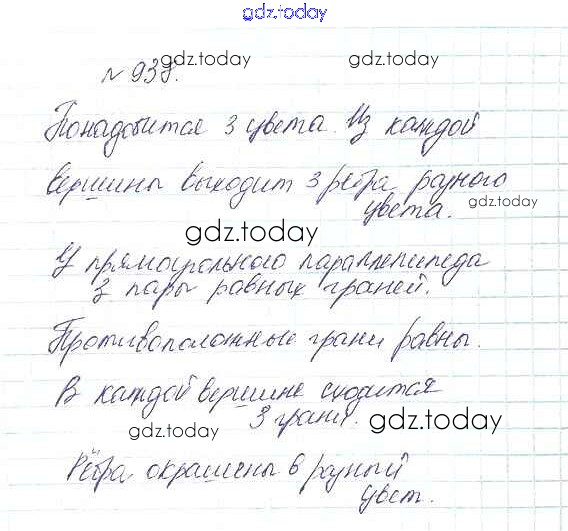 gdz.today
№ 938.
gdz.today
gdz.today
Понадобится 3 цвета. Из каждой
вершины выходит 3 ребра разного
цвета.
gdz.today
gdz.today
У прямоугольного параллелепипеда
3 пары равных граней.
Противоположные грани равны.
В каждой вершине сходится
3 грани.
gdz.today
gdz.today
Рёбра окрашены в разный
цвет.